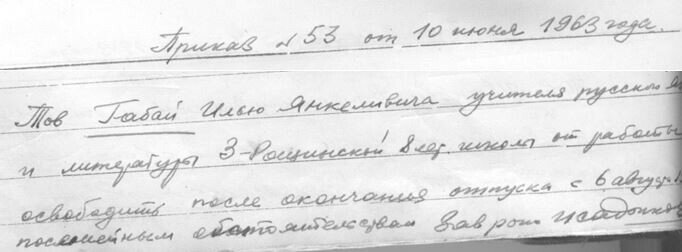 Приказ № 53 от 10 июня 1963 года.
Тов Габай Илью Янкелевича учителя русского яз
и литературы 3-Рощинской 8 лет. школы от работы
освободить после окончания отпуска с 6 августа
по семейным обстоятельствам Зав роно